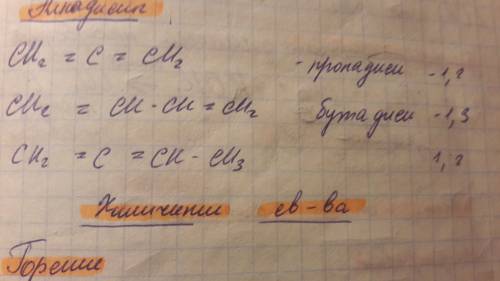 Алкадиены
CH₂ = C = CH₂ - пропадиен -1,2
CH₂ = CH - CH = CH₂ бутадиен -1,3
CH₂ = C = CH - CH₃ 1,2
Химические св-ва
Горение